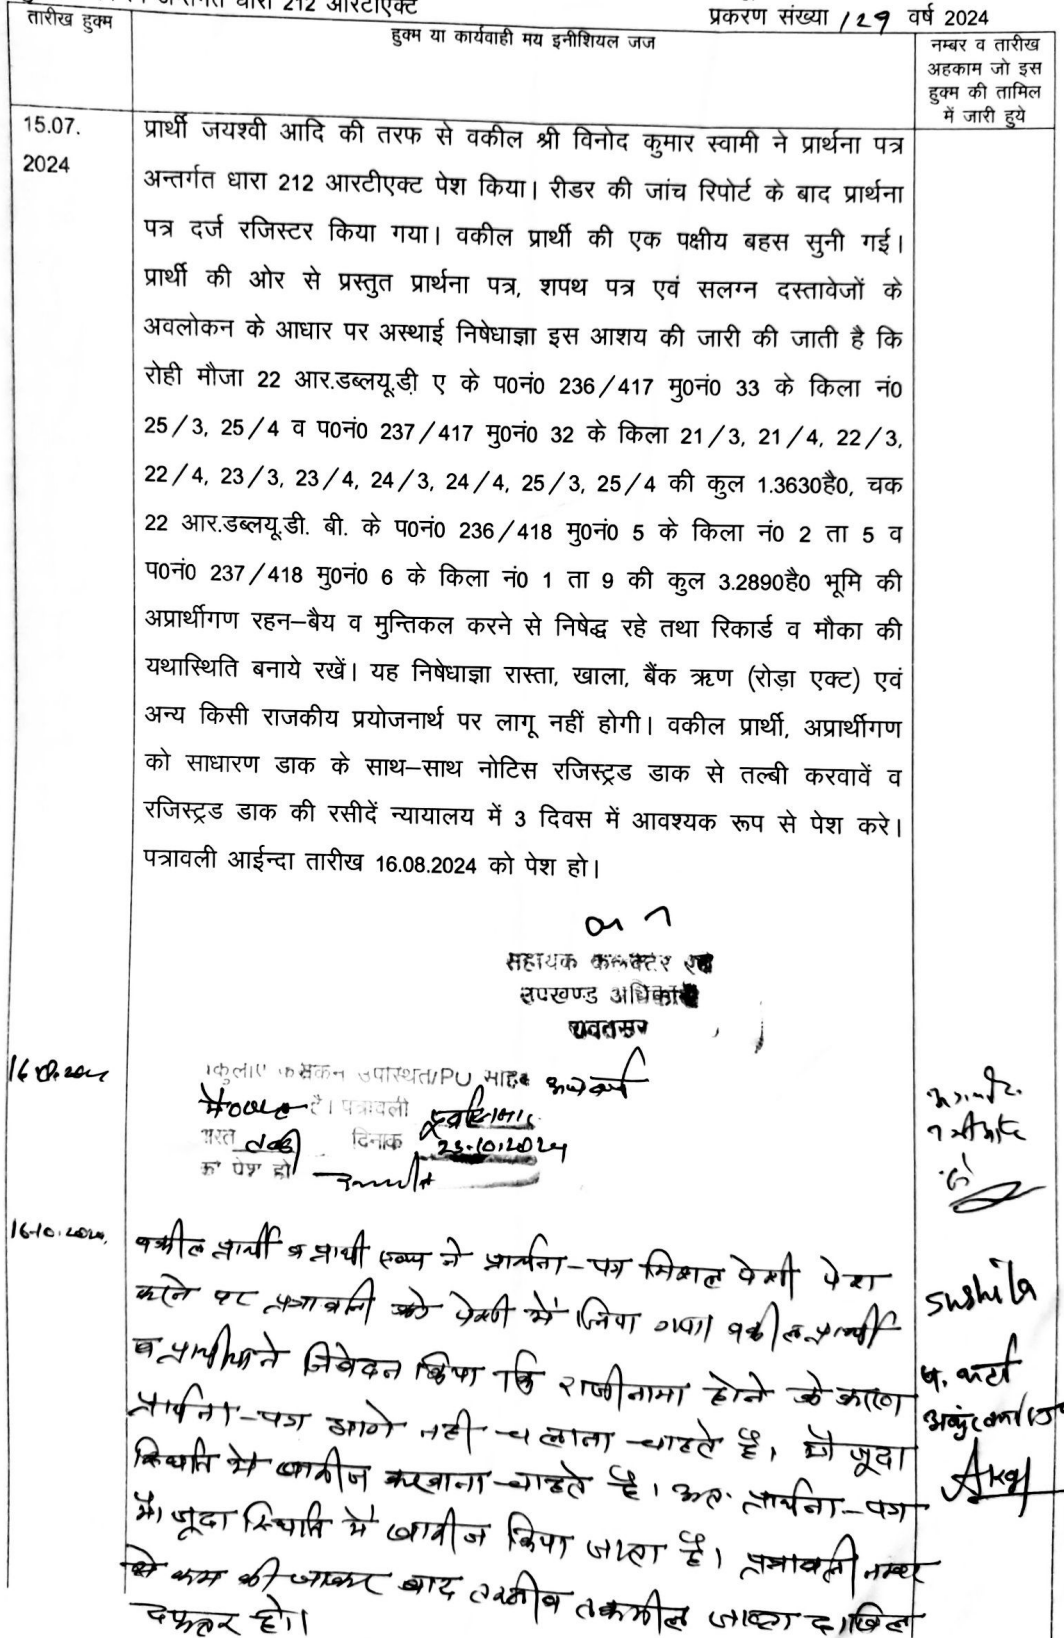 धारा 212 आरटीएक्ट
प्रकरण संख्या 129 वर्ष 2024
तारीख हुक्म
हुक्म या कार्यवाही मय इनीशियल जज
नम्बर व तारीख
अहकाम जो इस
हुक्म की तामिल
में जारी हुये
15.07.
2024
प्रार्थी जयश्वी आदि की तरफ से वकील श्री विनोद कुमार स्वामी ने प्रार्थना पत्र
अन्तर्गत धारा 212 आरटीएक्ट पेश किया। रीडर की जांच रिपोर्ट के बाद प्रार्थना
पत्र दर्ज रजिस्टर किया गया। वकील प्रार्थी की एक पक्षीय बहस सुनी गई।
प्रार्थी की ओर से प्रस्तुत प्रार्थना पत्र, शपथ पत्र एवं सलग्न दस्तावेजों के
अवलोकन के आधार पर अस्थाई निषेधाज्ञा इस आशय की जारी की जाती है कि
रोही मौजा 22 आर.डब्लयू.डी़ ए के प0नं0 236/417 मु0नं0 33 के किला नं0
25/3, 25/4 व प0नं0 237/417 मु0नं0 32 के किला 21/3, 21/4, 22/3,
22/4, 23/3, 23/4, 24/3, 24/4, 25/3, 25/4 की कुल 1.3630है0, चक
22 आर.डब्लयू.डी. बी. के प0नं0 236/418 मु0नं0 5 के किला नं0 2 ता 5 व
प0नं0 237/418 मु0नं0 6 के किला नं0 1 ता 9 की कुल 3.2890है0 भूमि की
अप्रार्थीगण रहन–बैय व मुन्तिकल करने से निषेद्ध रहे तथा रिकार्ड व मौका की
यथास्थिति बनाये रखें। यह निषेधाज्ञा रास्ता, खाला, बैंक ऋण (रोड़ा एक्ट) एवं
अन्य किसी राजकीय प्रयोजनार्थ पर लागू नहीं होगी। वकील प्रार्थी, अप्रार्थीगण
को साधारण डाक के साथ–साथ नोटिस रजिस्ट्रड डाक से तल्बी करवावें व
रजिस्ट्रड डाक की रसीदें न्यायालय में 3 दिवस में आवश्यक रूप से पेश करे।
पत्रावली आईन्दा तारीख 16.08.2024 को पेश हो।
सहायक कलक्टर एवं
उपखण्ड अधिकारी
रावतसर
उपस्थित/PO साहब
है। पत्रावली
वास्ते तलबी दिनांक 23.10.2024
को पेश हो
16.10.2024
वकील प्रार्थी व प्रार्थी स्वयं ने प्रार्थना-पत्र मिशल पेशी पेश
करने पर पत्रावली को पेशी में लिया गया। वकील प्रार्थी
व प्रार्थीया ने निवेदन किया कि राजीनामा होने के कारण
प्रार्थना-पत्र आगे नही चलाना चाहते है। मौजूदा
स्थिति मे खारीज करवाना चाहते है। अतः प्रार्थना-पत्र
मौजूदा स्थिति मे खारीज किया जाता है। पत्रावली नम्बर
से कम की जाकर बाद तरतीब तकमील जाब्ता दाखिल
दफ्तर हो।
Sushila